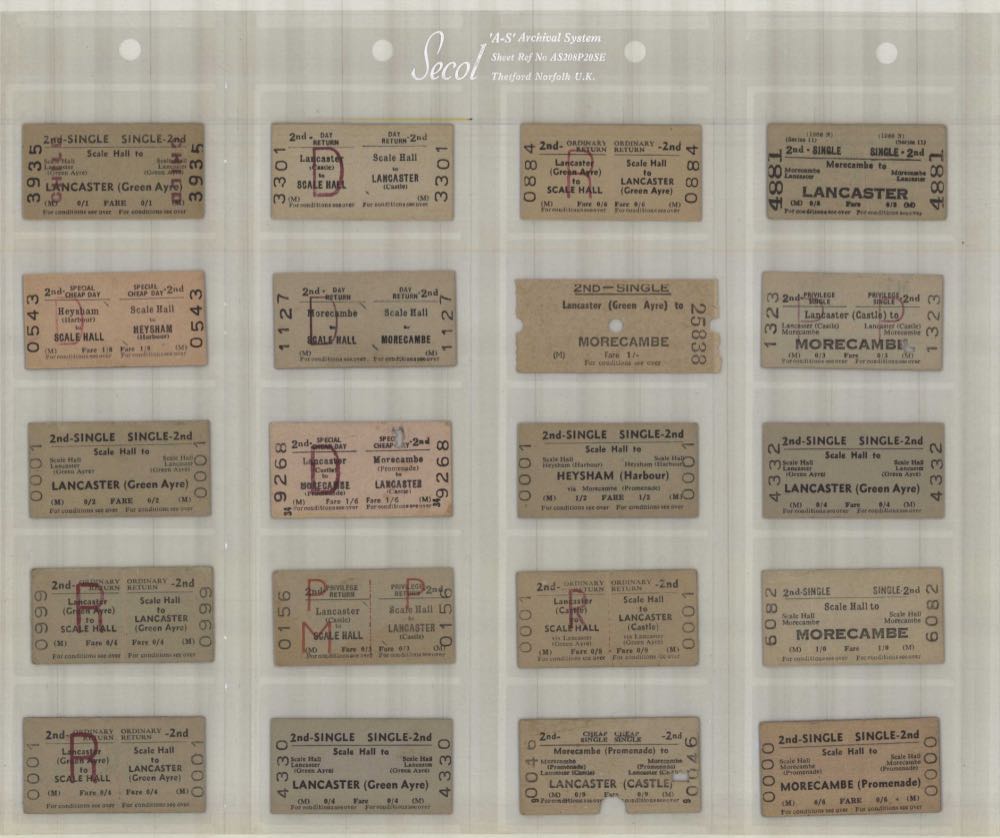 Secol
'A-S' Archival System
Sheet Ref No AS208P20SE
Thetford Norfolk U.K.
2nd-SINGLE SINGLE-2nd
Scale Hall to
LANCASTER (Green Ayre)
(M) 0/1 FARE 0/1 (M)
For conditions see over For conditions see over
3935 3935
CHILD CHILD
2nd - DAY RETURN DAY RETURN - 2nd
Lancaster (Castle) to SCALE HALL
Scale Hall to LANCASTER (Castle)
(M) (M)
For conditions see over For conditions see over
3301 3301
D
2nd - ORDINARY RETURN ORDINARY RETURN - 2nd
Lancaster (Green Ayre) to SCALE HALL
Scale Hall to LANCASTER (Green Ayre)
(M) Fare 0/6 Fare 0/6 (M)
For conditions see over For conditions see over
0884 0884
R
(Series 11) (Series 11)
2nd - SINGLE SINGLE - 2nd
Morecambe to
Morecambe Lancaster
Morecambe Lancaster
LANCASTER
(M) Fare (M)
For conditions see over For conditions see over
4881 4881
2nd - SPECIAL CHEAP DAY SPECIAL CHEAP DAY - 2nd
Heysham (Harbour) to SCALE HALL
Scale Hall to HEYSHAM (Harbour)
(M) Fare 1/8 Fare 1/8 (M)
For conditions see over For conditions see over
0543 0543
D
2nd - DAY RETURN DAY RETURN - 2nd
Morecambe to SCALE HALL
Scale Hall to MORECAMBE
(M) (M)
For conditions see over For conditions see over
1127 1127
2ND — SINGLE
Lancaster (Green Ayre) to
MORECAMBE
(M) Fare 1/-
For conditions see over
25838
2nd - PRIVILEGE SINGLE PRIVILEGE SINGLE - 2nd
Lancaster (Castle) to
Lancaster (Castle) Morecambe
Lancaster (Castle) Morecambe
MORECAMBE
(M) 0/3 Fare 0/3 (M)
For conditions see over For conditions see over
1323 1323
2nd-SINGLE SINGLE-2nd
Scale Hall to
Scale Hall Lancaster (Green Ayre)
Scale Hall Lancaster (Green Ayre)
LANCASTER (Green Ayre)
(M) 0/2 FARE 0/2 (M)
For conditions see over For conditions see over
0001 0001
2nd - SPECIAL CHEAP DAY 2nd
Lancaster (Castle) to MORECAMBE (Promenade)
Morecambe (Promenade) to LANCASTER (Castle)
(M) Fare 1/6 Fare 1/6 (M)
For conditions see over For conditions see over
34 9268 34 9268
D
2nd-SINGLE SINGLE-2nd
Scale Hall to
Scale Hall Heysham (Harbour)
Scale Hall Heysham (Harbour)
HEYSHAM (Harbour)
via Morecambe (Promenade)
(M) 1/2 FARE 1/2 (M)
For conditions see over For conditions see over
0001 0001
2nd-SINGLE SINGLE-2nd
Scale Hall to
Scale Hall Lancaster (Green Ayre)
Scale Hall Lancaster (Green Ayre)
LANCASTER (Green Ayre)
(M) 0/4 Fare 0/4 (M)
For conditions see over For conditions see over
4332 4332
2nd- ORDINARY RETURN ORDINARY RETURN -2nd
Lancaster (Green Ayre) to SCALE HALL
Scale Hall to LANCASTER (Green Ayre)
(M) Fare 0/6 Fare 0/6 (M)
For conditions see over For conditions see over
0999 0999
R
2nd- PRIVILEGE RETURN PRIVILEGE RETURN -2nd
Lancaster (Castle) to SCALE HALL
Scale Hall to LANCASTER (Castle)
(M) Fare 0/3 Fare 0/3 (M)
For conditions see over For conditions see over
0156 0156
P P
M
2nd- ORDINARY RETURN ORDINARY RETURN -2nd
Lancaster (Castle) to SCALE HALL
via Lancaster (Green Ayre)
Scale Hall to LANCASTER (Castle)
via Lancaster (Green Ayre)
(M) Fare 0/8 Fare 0/8 (M)
For conditions see over For conditions see over
0001 0001
R
2nd-SINGLE SINGLE-2nd
Scale Hall to
Scale Hall Morecambe
Scale Hall Morecambe
MORECAMBE
(M) 1/0 Fare 1/0 (M)
For conditions see over For conditions see over
6082 6082
2nd- ORDINARY RETURN ORDINARY RETURN -2nd
Lancaster (Green Ayre) to SCALE HALL
Scale Hall to LANCASTER (Green Ayre)
(M) Fare 0/6 Fare 0/6 (M)
For conditions see over For conditions see over
0001 0001
R
2nd-SINGLE SINGLE-2nd
Scale Hall to
Scale Hall Lancaster (Green Ayre)
Scale Hall Lancaster (Green Ayre)
LANCASTER (Green Ayre)
(M) 0/4 Fare 0/4 (M)
For conditions see over For conditions see over
4330 4330
2nd- CHEAP SINGLE CHEAP SINGLE -2nd
Morecambe (Promenade) to
Morecambe (Promenade) Lancaster (Castle)
Morecambe (Promenade) Lancaster
LANCASTER (CASTLE)
(M) 0/9 Fare 0/9 (M)
For conditions see over For conditions see over
0046 0046
2nd-SINGLE SINGLE-2nd
Scale Hall to
Scale Hall Morecambe (Promenade)
Scale Hall Morecambe (Promenade)
MORECAMBE (Promenade)
(M) 0/6 FARE 0/6 (M)
For conditions see over For conditions see over
0000 0000